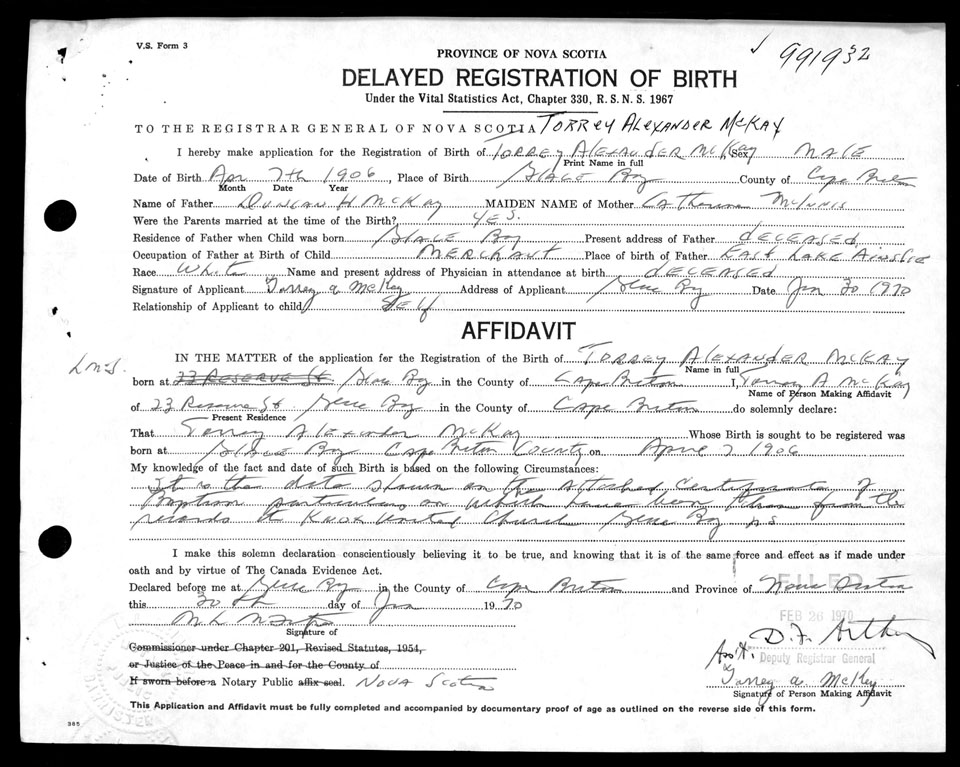 V.S. Form 3
991932
PROVINCE OF NOVA SCOTIA
DELAYED REGISTRATION OF BIRTH
Under the Vital Statistics Act, Chapter 330, R.S.N.S. 1967
TO THE REGISTRAR GENERAL OF NOVA SCOTIA TORREY ALEXANDER McKAY
I hereby make application for the Registration of Birth of TORREY ALEXANDER McKay, Sex MALE
Print Name in full
Date of Birth Apr 7th 1906, Place of Birth GLACE Bay County of Cape Breton
Month Date Year
Name of Father DUNCAN H McKAY MAIDEN NAME of Mother CATHERINE McINNIS
Were the Parents married at the time of the Birth? YES.
Residence of Father when Child was born GLACE Bay Present address of Father DECEASED
Occupation of Father at Birth of Child MERCHANT Place of birth of Father EAST LAKE AINSLIE
Race White Name and present address of Physician in attendance at birth DECEASED
Signature of Applicant Torrey A McKay Address of Applicant Glace Bay Date Jan 30 1970
Relationship of Applicant to child SELF
AFFIDAVIT
IN THE MATTER of the application for the Registration of the Birth of TORREY ALEXANDER McKAY
Name in full
born at 23 RESERVE St. Glace Bay in the County of Cape Breton I, Torrey A McKay
Name of Person Making Affidavit
of 23 Reserve St Glace Bay in the County of Cape Breton do solemnly declare:
Present Residence
That Torrey Alexander McKay Whose Birth is sought to be registered was
born at Glace Bay Cape Breton County on April 7 1906
My knowledge of the fact and date of such Birth is based on the following Circumstances:
It is the date shown on the attached Certificate of
Baptism particulars on which have been taken from the
records of Knox United Church Glace Bay NS
I make this solemn declaration conscientiously believing it to be true, and knowing that it is of the same force and effect as if made under
oath and by virtue of The Canada Evidence Act.
Declared before me at Glace Bay in the County of Cape Breton and Province of Nova Scotia
FILED
this 30th day of Jan 1970
FEB 26 1970
Signature of
Commissioner under Chapter 201, Revised Statutes, 1954,
or Justice of the Peace in and for the County of
Ass't. Deputy Registrar General
If sworn before a Notary Public affix seal. NOVA Scotia
Torrey A McKay
Signature of Person Making Affidavit
This Application and Affidavit must be fully completed and accompanied by documentary proof of age as outlined on the reverse side of this form.
385